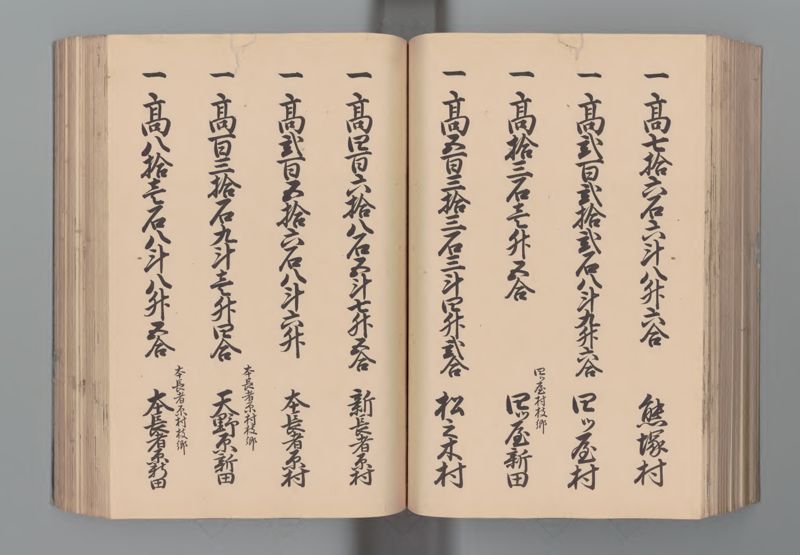 一 高七拾六石六斗八升六合 熊塚村
一 高弐百弐拾弐石八斗九升六合 四ッ屋村
一 高拾三石壱升五合 四ッ屋村枝郷 四ッ屋新田
一 高五百三拾三石三斗四升弐合 松之木村
一 高四百六拾八石五斗七升五合 新長者原村
一 高弐百五拾六石八斗六升 本長者原村
一 高百三拾石九斗壱升四合 本長者原村枝郷 天野原新田
一 高八拾壱石八斗八升五合 本長者原村枝郷 本長者原新田